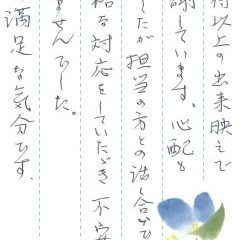 待以上の出来映えで
謝しています。心配も
したが担当の方との話し合いで
な対応をしていただき不安
ませんでした。
満足な気分です。